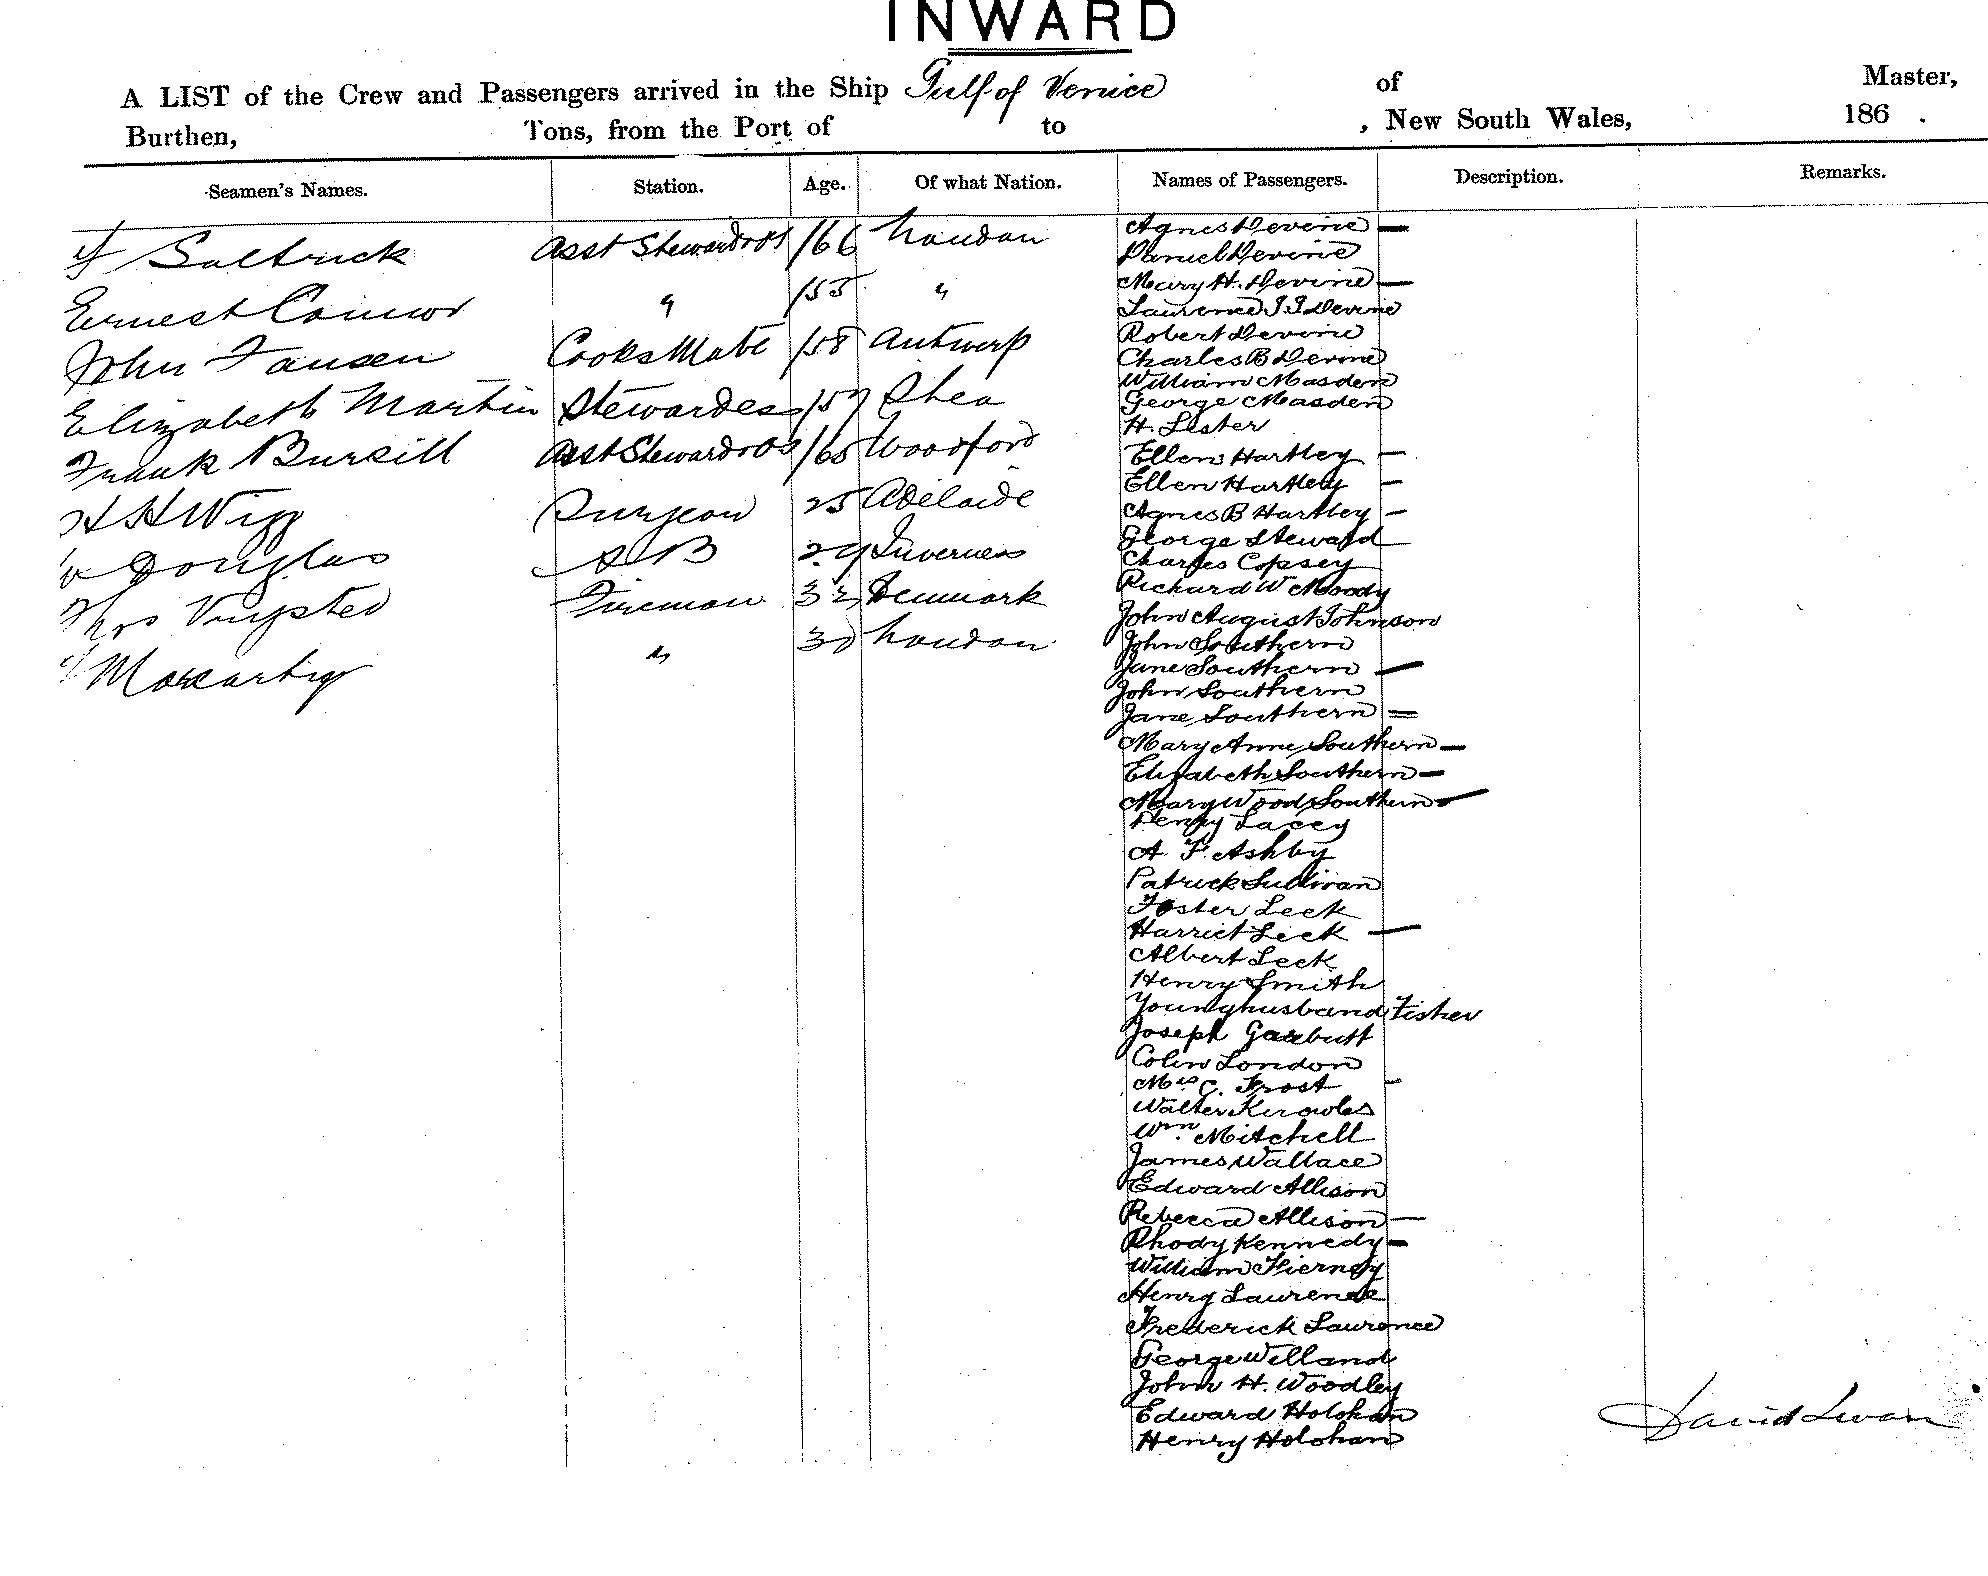 INWARD
A LIST of the Crew and Passengers arrived in the Ship Gulf of Venice of Master,
Burthen, Tons, from the Port of to , New South Wales, 186 .
Seamen's Names. Station. Age. Of what Nation. Names of Passengers. Description. Remarks.
Saltrick Asst Steward /66 London
Ernest Connor " /55 "
John Jansen Cooks Mate /58 Antwerp
Elizabeth Martin Stewardess /57 Shea
Frank Bursill Asst Steward /65 Woodford
H H Wigg Surgeon 25 Adelaide
Douglas AB 29 Inverness
Fireman 32 Denmark
" 30 London
Agnes Devine —
Daniel Devine
Mary H. Devine —
Laurence J J Devine
Robert Devine
Charles B Devine
William Masden
George Masden
H. Lester
Ellen Hartley —
Ellen Hartley —
Agnes B Hartley —
George Steward
Charles Copsey
Richard W Moody
John August Johnson
John Southern
Jane Southern —
John Southern
Jane Southern =
Mary Anne Southern —
Elizabeth Southern —
Mary Wood Southern —
Henry Lacey
A. F. Ashby
Patrick Sullivan
Foster Leck
Harriet Leck —
Albert Leck
Henry Smith
Younghusband Fisher
Joseph Garbutt
Colin London
Mrs C. Frost -
Walter Knowles
Wm Mitchell
James Wallace
Edward Allison
Rebecca Allison —
Rhody Kennedy —
William Tierney
Henry Laurence
Frederick Laurence
George Welland
John H. Woodley
Edward Holohan
Henry Holohan
David Swan